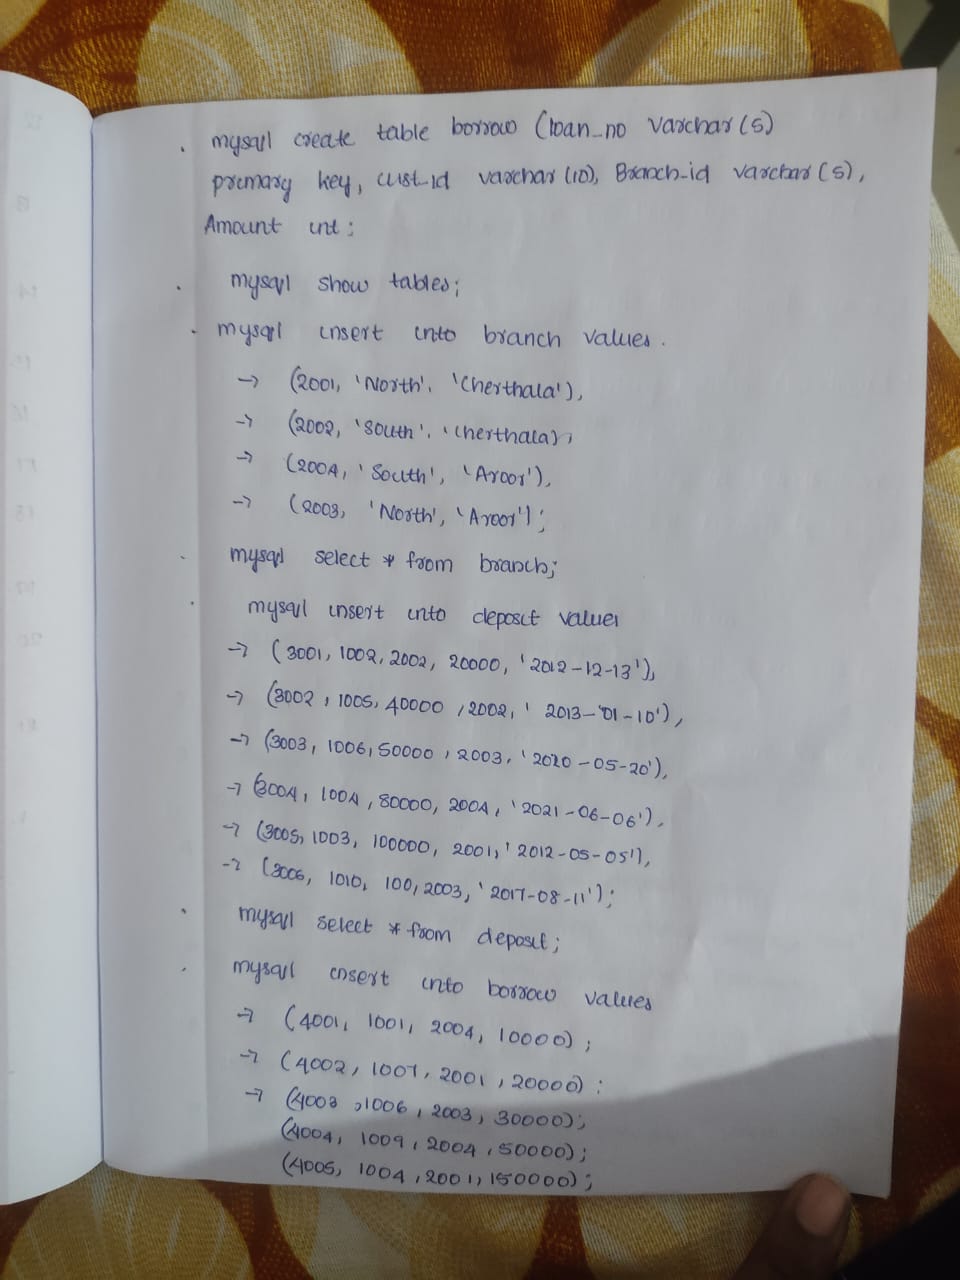 . mysql create table borrow (loan_no varchar(5)
primary key, cust_id varchar(10), Branch_id varchar(5),
Amount int;
. mysql show tables;
. mysql insert into branch values.
→ (2001, 'North'. 'Cherthala'),
→ (2002, 'South'. 'Cherthala),
→ (2004, 'South', 'Aroor'),
→ (2003, 'North', 'Aroor');
. mysql select * from branch;
. mysql insert into deposit values
→ (3001, 1002, 2002, 20000, '2012-12-13'),
→ (3002, 1005, 40000, 2002, '2013-'01-10'),
→ (3003, 1006, 50000, 2003, '2020-05-20'),
→ (3004, 1004, 80000, 2004, '2021-06-06'),
→ (3005, 1003, 100000, 2001, '2012-05-05'),
→ (3006, 1010, 100, 2003, '2017-08-11');
. mysql select * from deposit;
. mysql insert into borrow values
→ (4001, 1001, 2004, 10000);
→ (4002, 1007, 2001, 20000):
→ (4003, 1006, 2003, 30000);
(4004, 1009, 2004, 50000);
(4005, 1004, 2001, 150000);